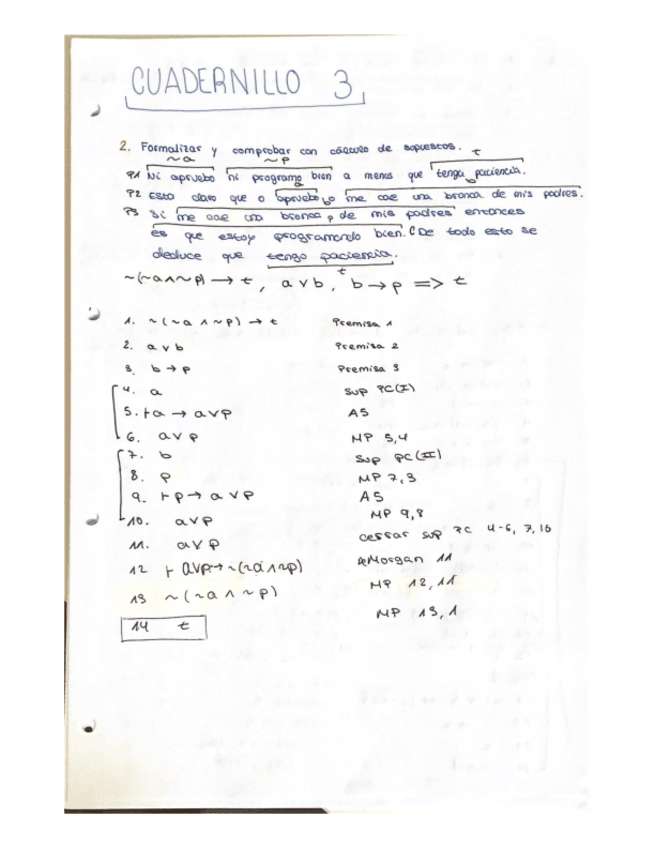 CUADERNILLO 3
2. Formalizar y comprobar con cálculo de supuestos. t
~a ~p
P1 Ni apruebo ni programo bien a menos que tenga paciencia.
P2 Esta claro que o apruebo o me cae una bronca de mis padres.
b
P3 Si me cae una bronca de mis padres entonces
p
es que estoy programando bien. C De todo esto se
deduce que tengo paciencia.
t
~(~a∧~p) → t, a v b, b → p => t
1. ~(~a ∧ ~p) → t Premisa 1
2. a v b Premisa 2
3. b → p Premisa 3
4. a Sup PC(I)
5. ⊢a → a v p AS
6. a v p MP 5,4
7. b Sup PC(II)
8. p MP 7,3
9. ⊢ p → a v p AS
10. a v p MP 9,8
11. a v p cerrar sup PC 4-6, 7,10
12 ⊢ a v p → ~(~a∧~p) deMorgan 11
13 ~(~a ∧ ~p) MP 12,11
14 t MP 13,1